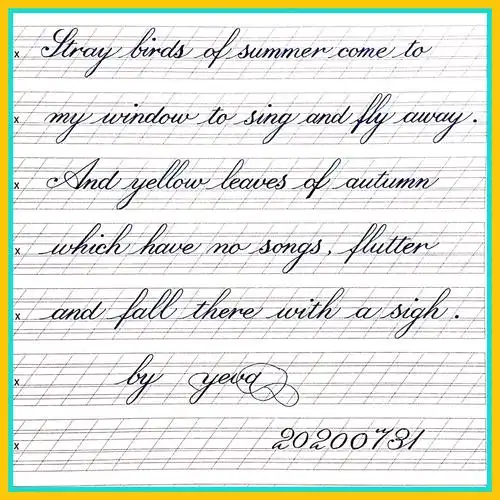 Stray birds of summer come to
my window to sing and fly away.
And yellow leaves of autumn
which have no songs, flutter
and fall there with a sigh.
by yeva
20200731